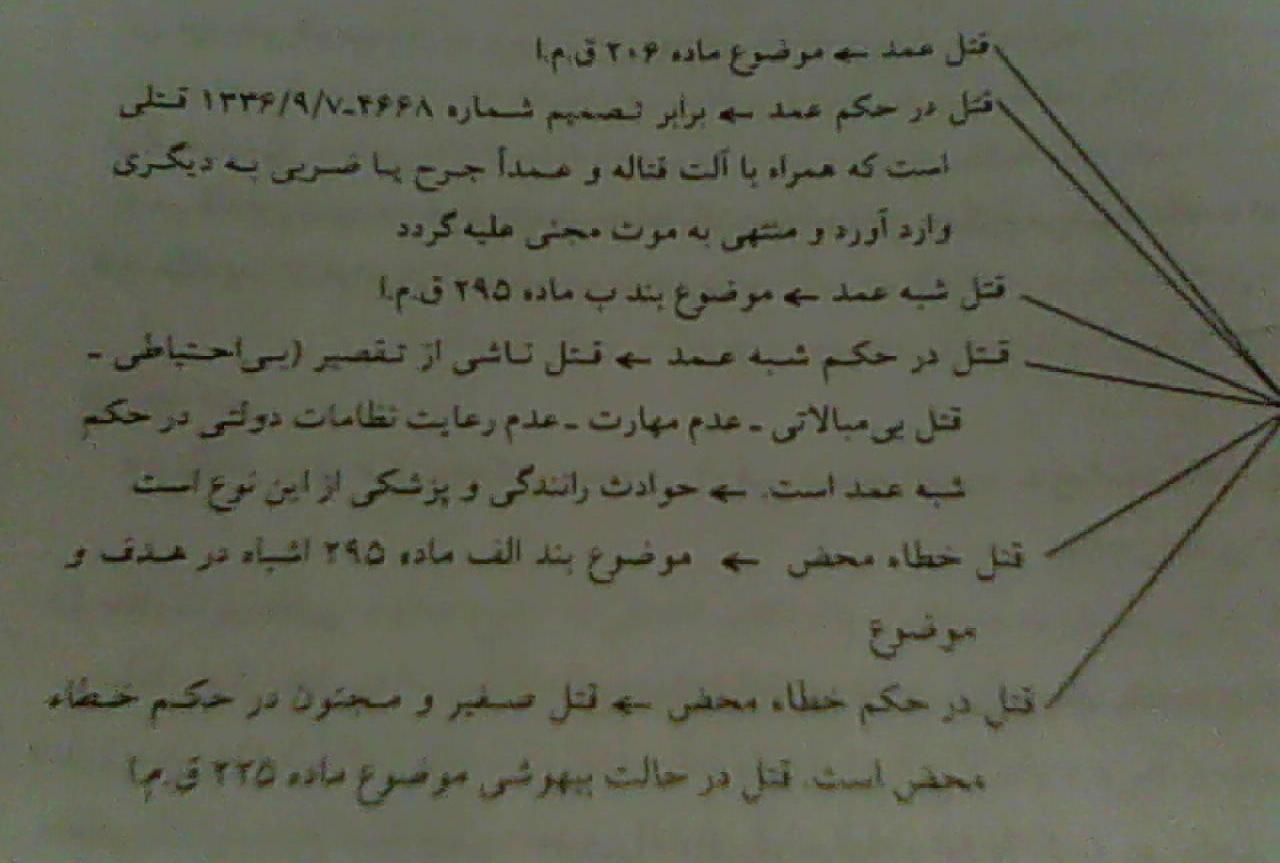 قتل عمد ← موضوع ماده ۲۰۶ ق.م.ا
قتل در حکم عمد ← برابر تصمیم شماره ۲۶۶۸-۱۳۳۶/۹/۷ قتلی
است که همراه با آلت قتاله و عمداً جرح یا ضربی به دیگری
وارد آورد و منتهی به موت مجنی علیه گردد
قتل شبه عمد ← موضوع بند ب ماده ۲۹۵ ق.م.ا
قتل در حکم شبه عمد ← قتل ناشی از تقصیر (بی‌احتیاطی -
قتل بی‌مبالاتی - عدم مهارت - عدم رعایت نظامات دولتی در حکم
شبه عمد است. ← حوادث رانندگی و پزشکی از این نوع است
قتل خطاء محض ← موضوع بند الف ماده ۲۹۵ اشباه در هدف و
موضوع
قتل در حکم خطاء محض ← قتل صغیر و مجنون در حکم خطاء
محض است. قتل در حالت بیهوشی موضوع ماده ۲۲۵ ق.م.ا